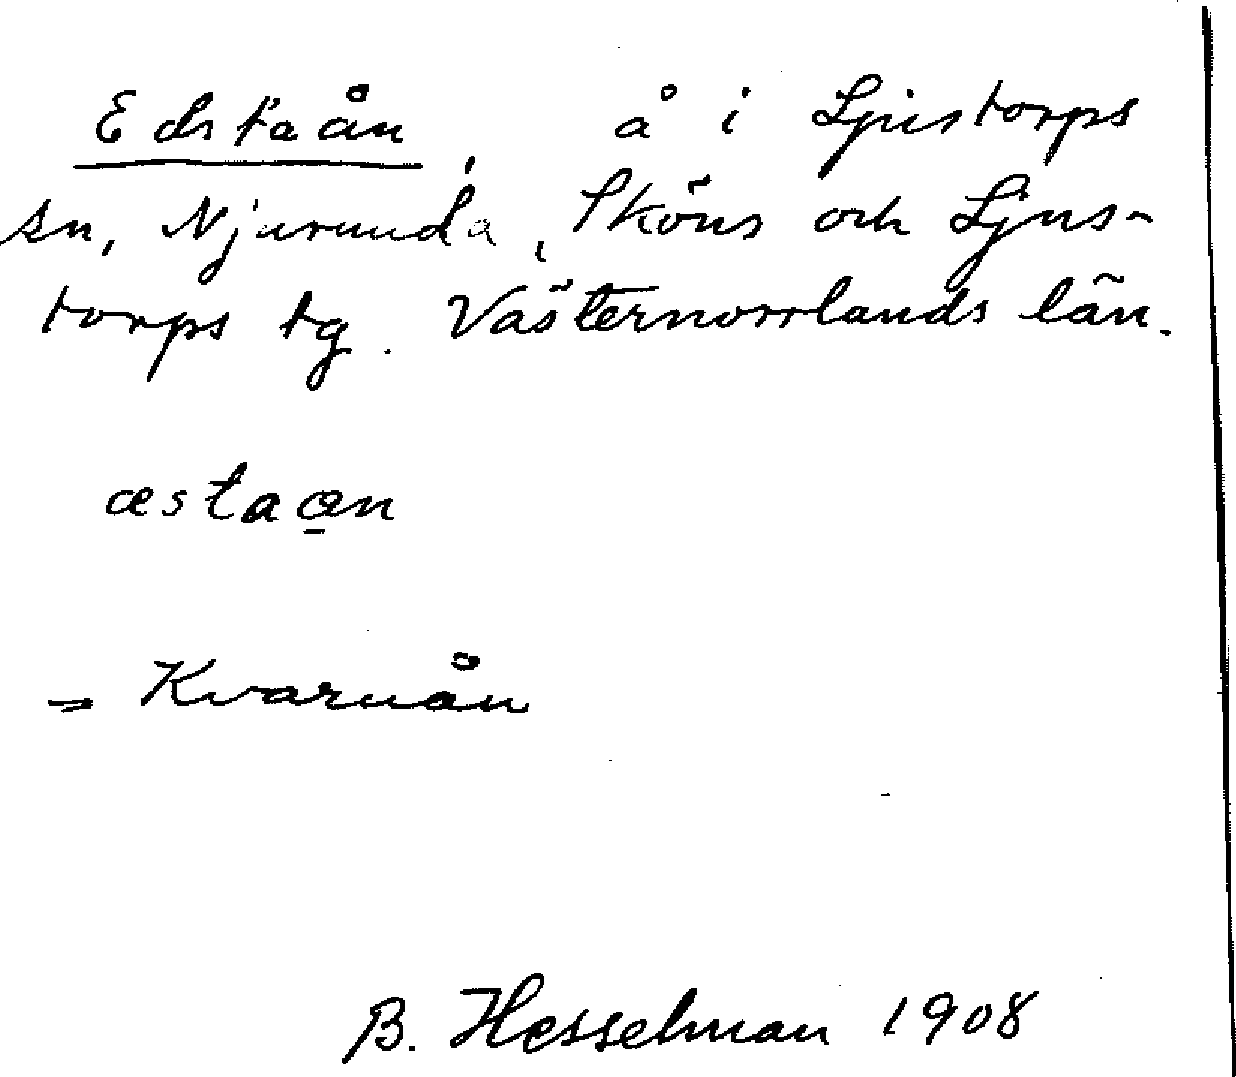 Edstaån, å i Ljustorps
sn, Njurunda, Sköns och Ljus-
torps tg. Västernorrlands län.
æstaæn
= Kvarnån
B. Hesselman 1908